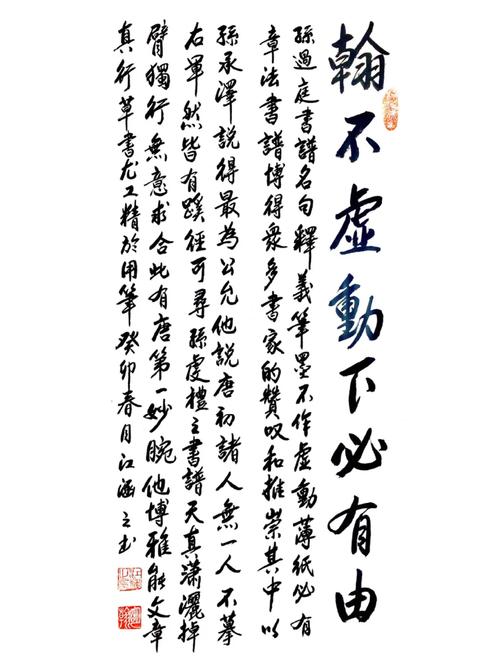 翰不虛動下必有由
孫過庭書譜名句釋義筆墨不作虛動薄紙必有
章法書譜博得衆多書家的贊叹和推崇其中以
孫承澤説得最為公允他説唐初諸人無一人不摹
右軍然皆有蹊徑可尋孫虔禮之書譜天真瀟灑掉
臂獨行無意求合此有唐第一妙腕他博雅能文章
真行草書尤工精於用筆癸卯春月江涵之书